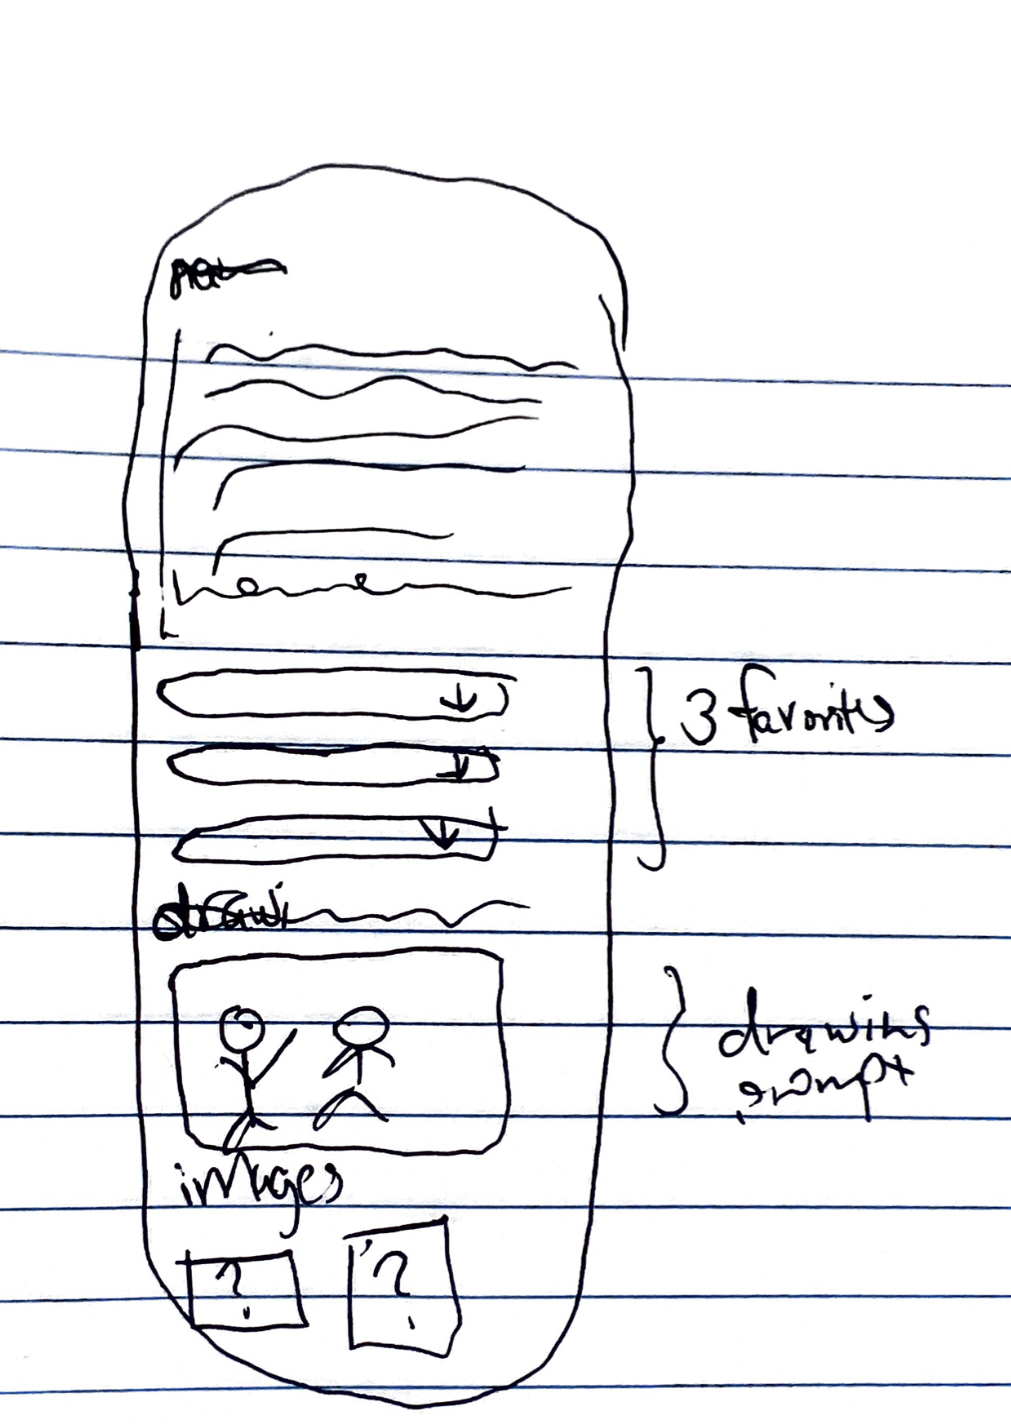 3 favorites
drawi
drawing
prompt
images
?
?